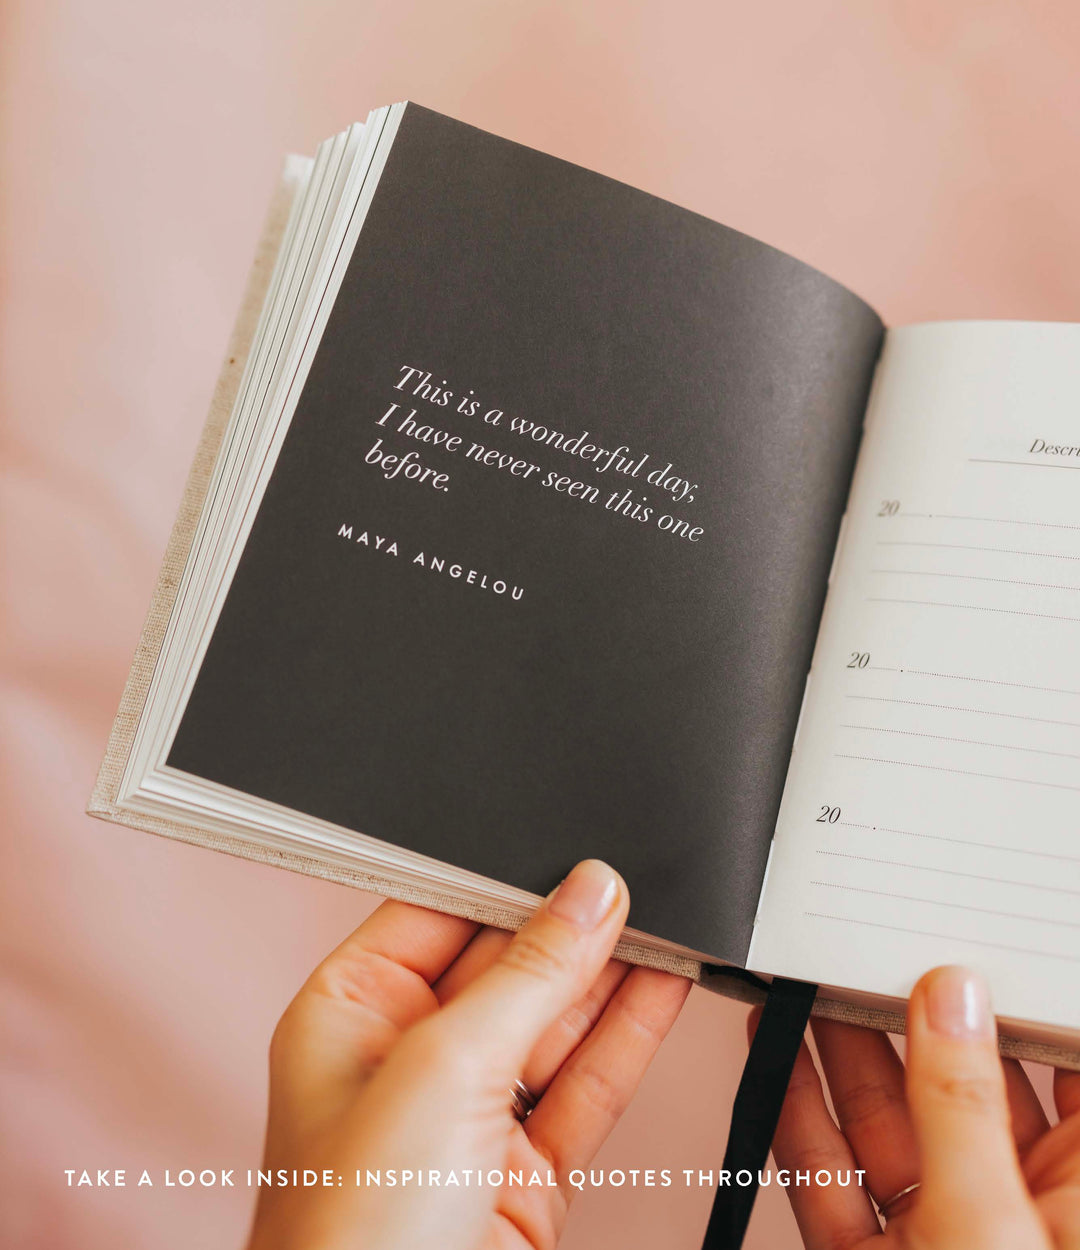 This is a wonderful day,
I have never seen this one
before.
MAYA ANGELOU
20
20
20
TAKE A LOOK INSIDE: INSPIRATIONAL QUOTES THROUGHOUT